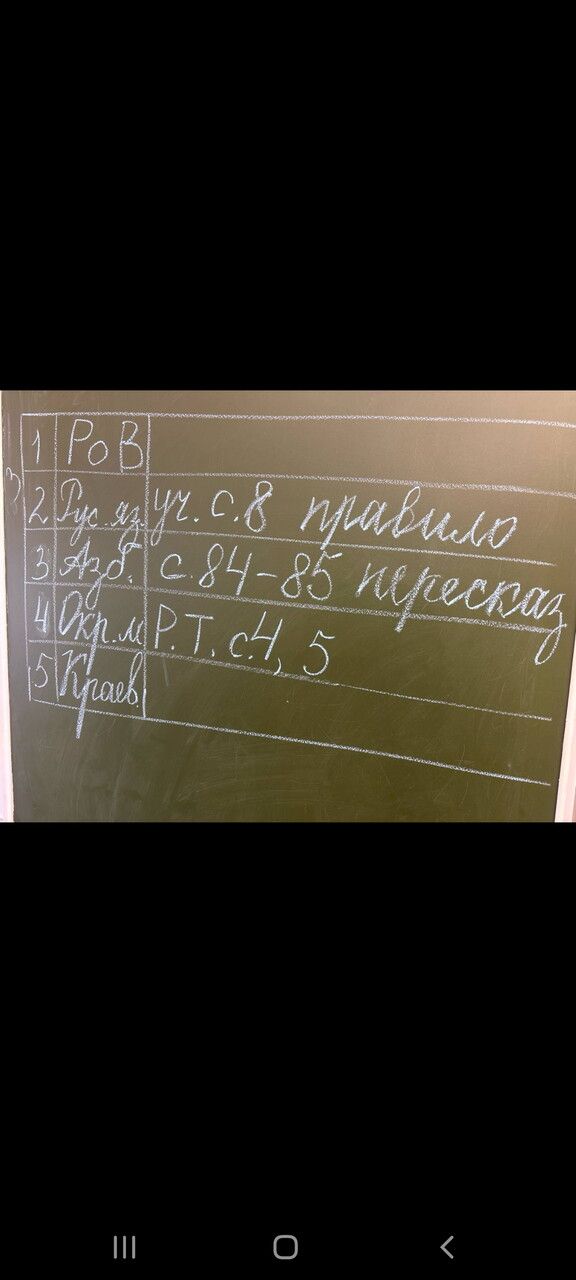 1 РоВ
2 Рус. яз. уч. с. 8 правило
3 Азб. с. 84-85 пересказ
4 Окр. м Р. Т. с. 4, 5
5 Краев.